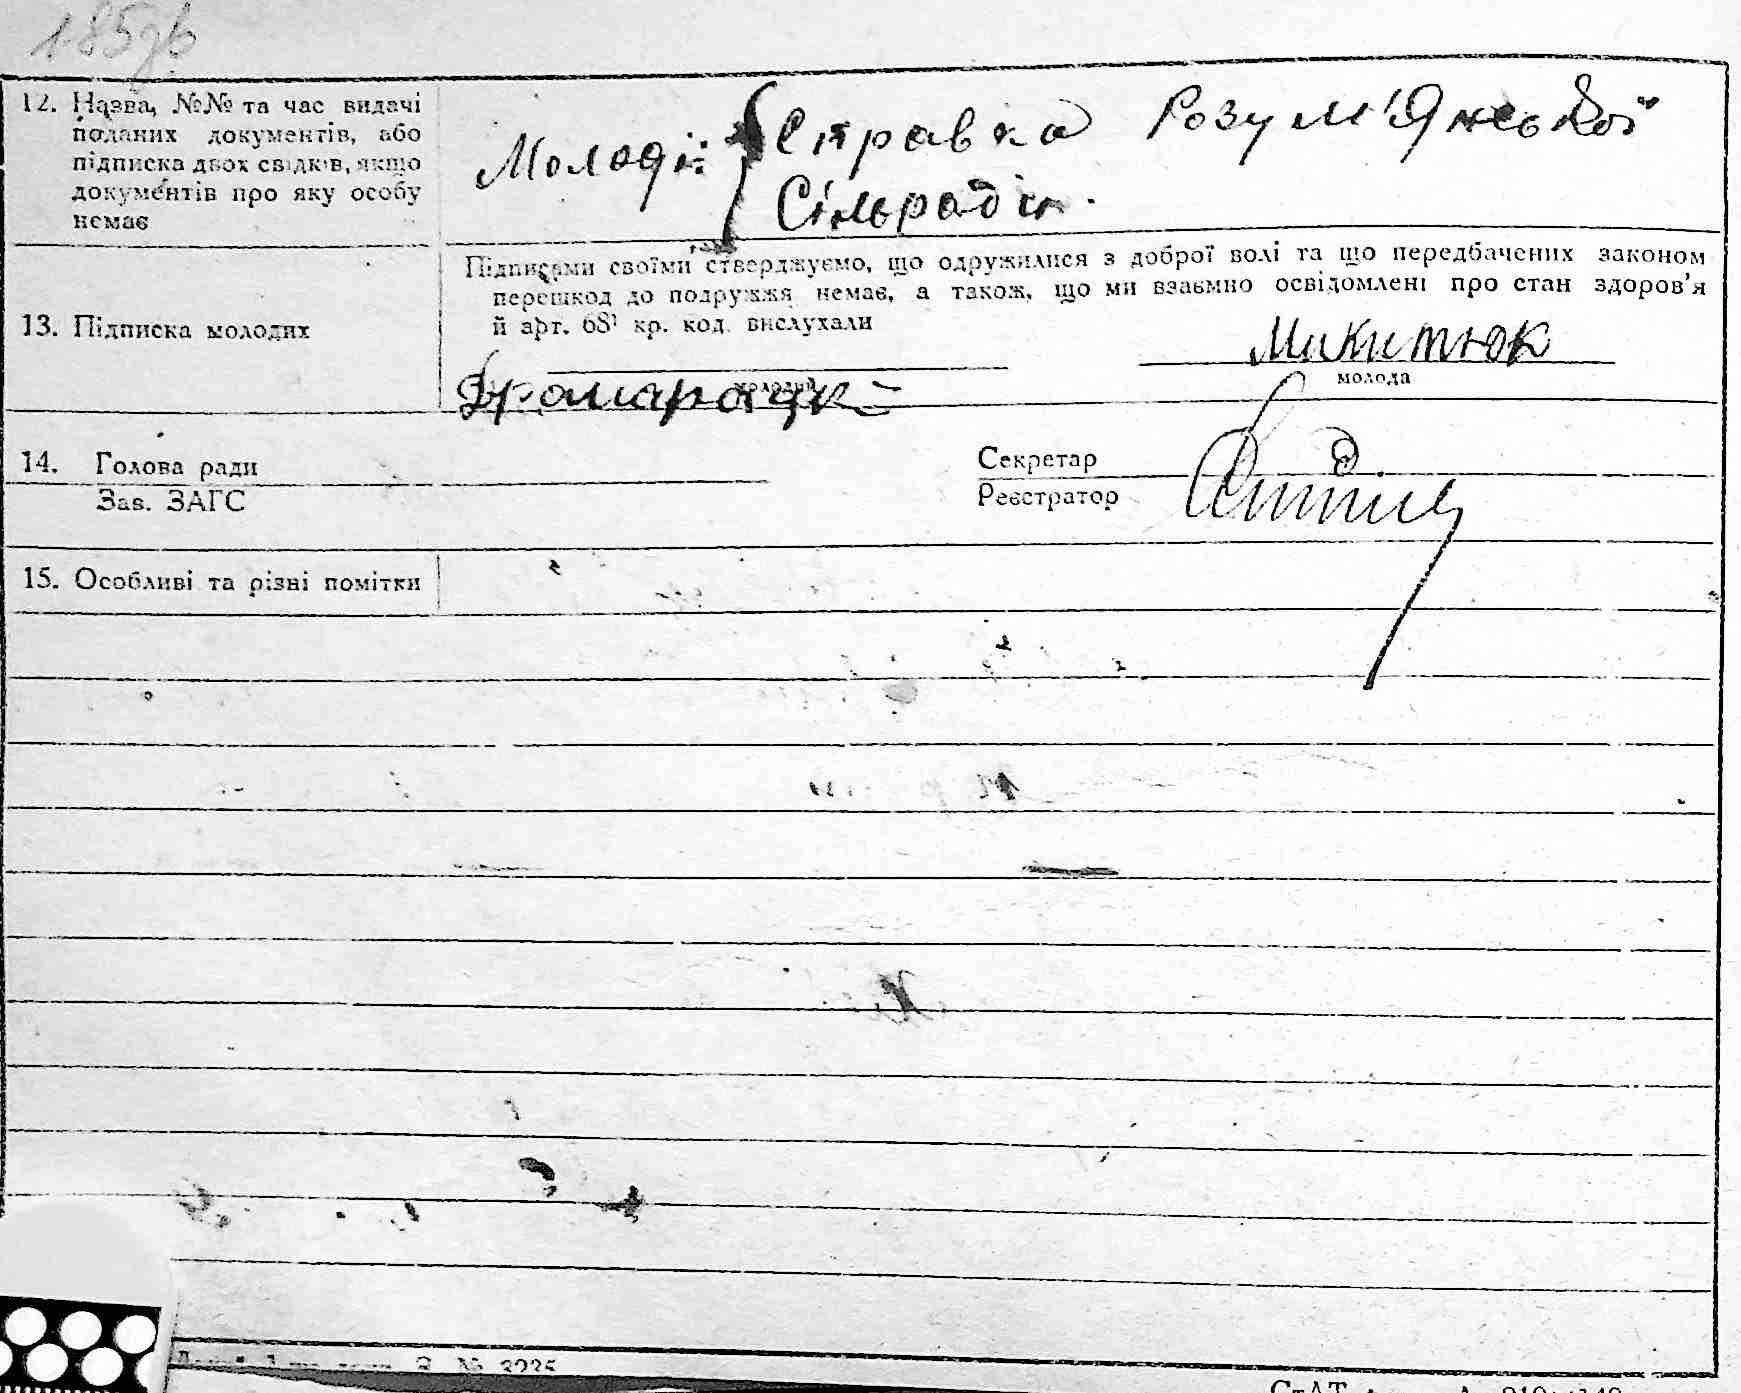 185зв
12. Назва, №№ та час видачі
поданих документів, або
підписка двох свідків, якщо
документів про яку особу
немає
Молоді: Справка Розумʼянської
Сільради.
13. Підписка молодих
Підписами своїми стверджуємо, що одружилися з доброї волі та що передбачених законом
перешкод до подружжя немає, а також, що ми взаємно освідомлені про стан здоров'я
й арт. 68¹ кр. код. вислухали
Микитюк
молодий
молода
14. Голова ради
Зав. ЗАГС
Секретар
Реєстратор
15. Особливі та різні помітки
№ 3235